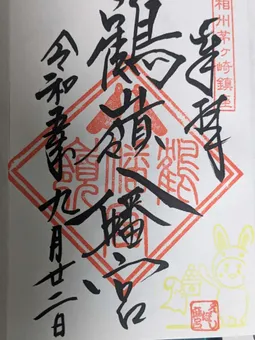 相州茅ヶ崎鎮座
奉拝
鶴嶺八幡宮
令和五年九月廿二日